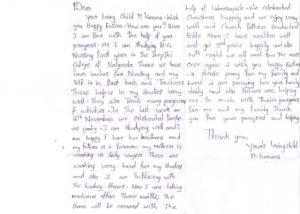 Dear
your loving child M. Kumana - wish
you Happy Easter. How are you? Here
I am fine with the help of your
prayers. As I am studying Bsc
Nursing first year in Sri
College of Nalgonda There we have
four incharges for Nursing and my
is in first back and
These helps in my studies very
well. They also those many programs
of activities. In the last week on
15th November we celebrated
as party. I am studying well and I
am happy I have two brothers and
my father is a farmer. my mother is
working as daily wages These are
working very hard for my studies
and also I am suffering with
the kidney stones. Now I am taking
medicine after three months, the
stone will be removed with the
help of laboroscopic. We celebrated
Christmas happily and we enjoy very
well and Church fathers conducted
Bible exam. I have written well
and got 3rd prize happily and also
with night we all had the cake
once again I wish you happy Easter
. Please pray for my family and
friend I am praying for your family
daily and also Sisters are helping
me so much with their prayers
for me and my family Thank
you for your prayers and helping
Thank you,
Yours loving child
M. Kumana